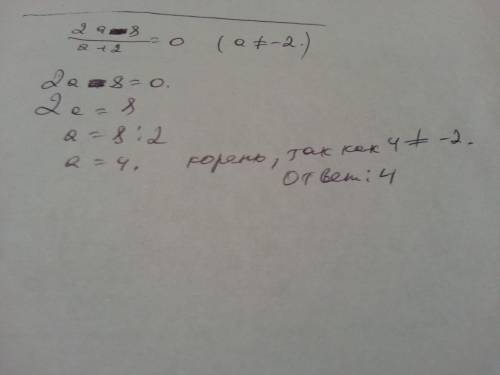 2a-8/a+2 = 0 (a ≠ -2.)
2a - 8 = 0.
2a = 8
a = 8 : 2
a = 4. корень, так как 4 ≠ -2.
Ответ: 4